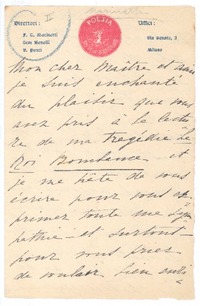 Direttori:
F. T. Marinetti
Sem Benelli
V. Ponti
POESIA
Uffici:
Via Senato, 2
Milano
Mon cher Maître et ami
je suis enchanté
du plaisir que vous
avez pris à la lecture
de ma tragédie Le
Roi Bombance et
je me hâte de vous
écrire pour vous ex-
primer toute ma sym-
pathie et surtout
pour vous prier
de vouloir bien